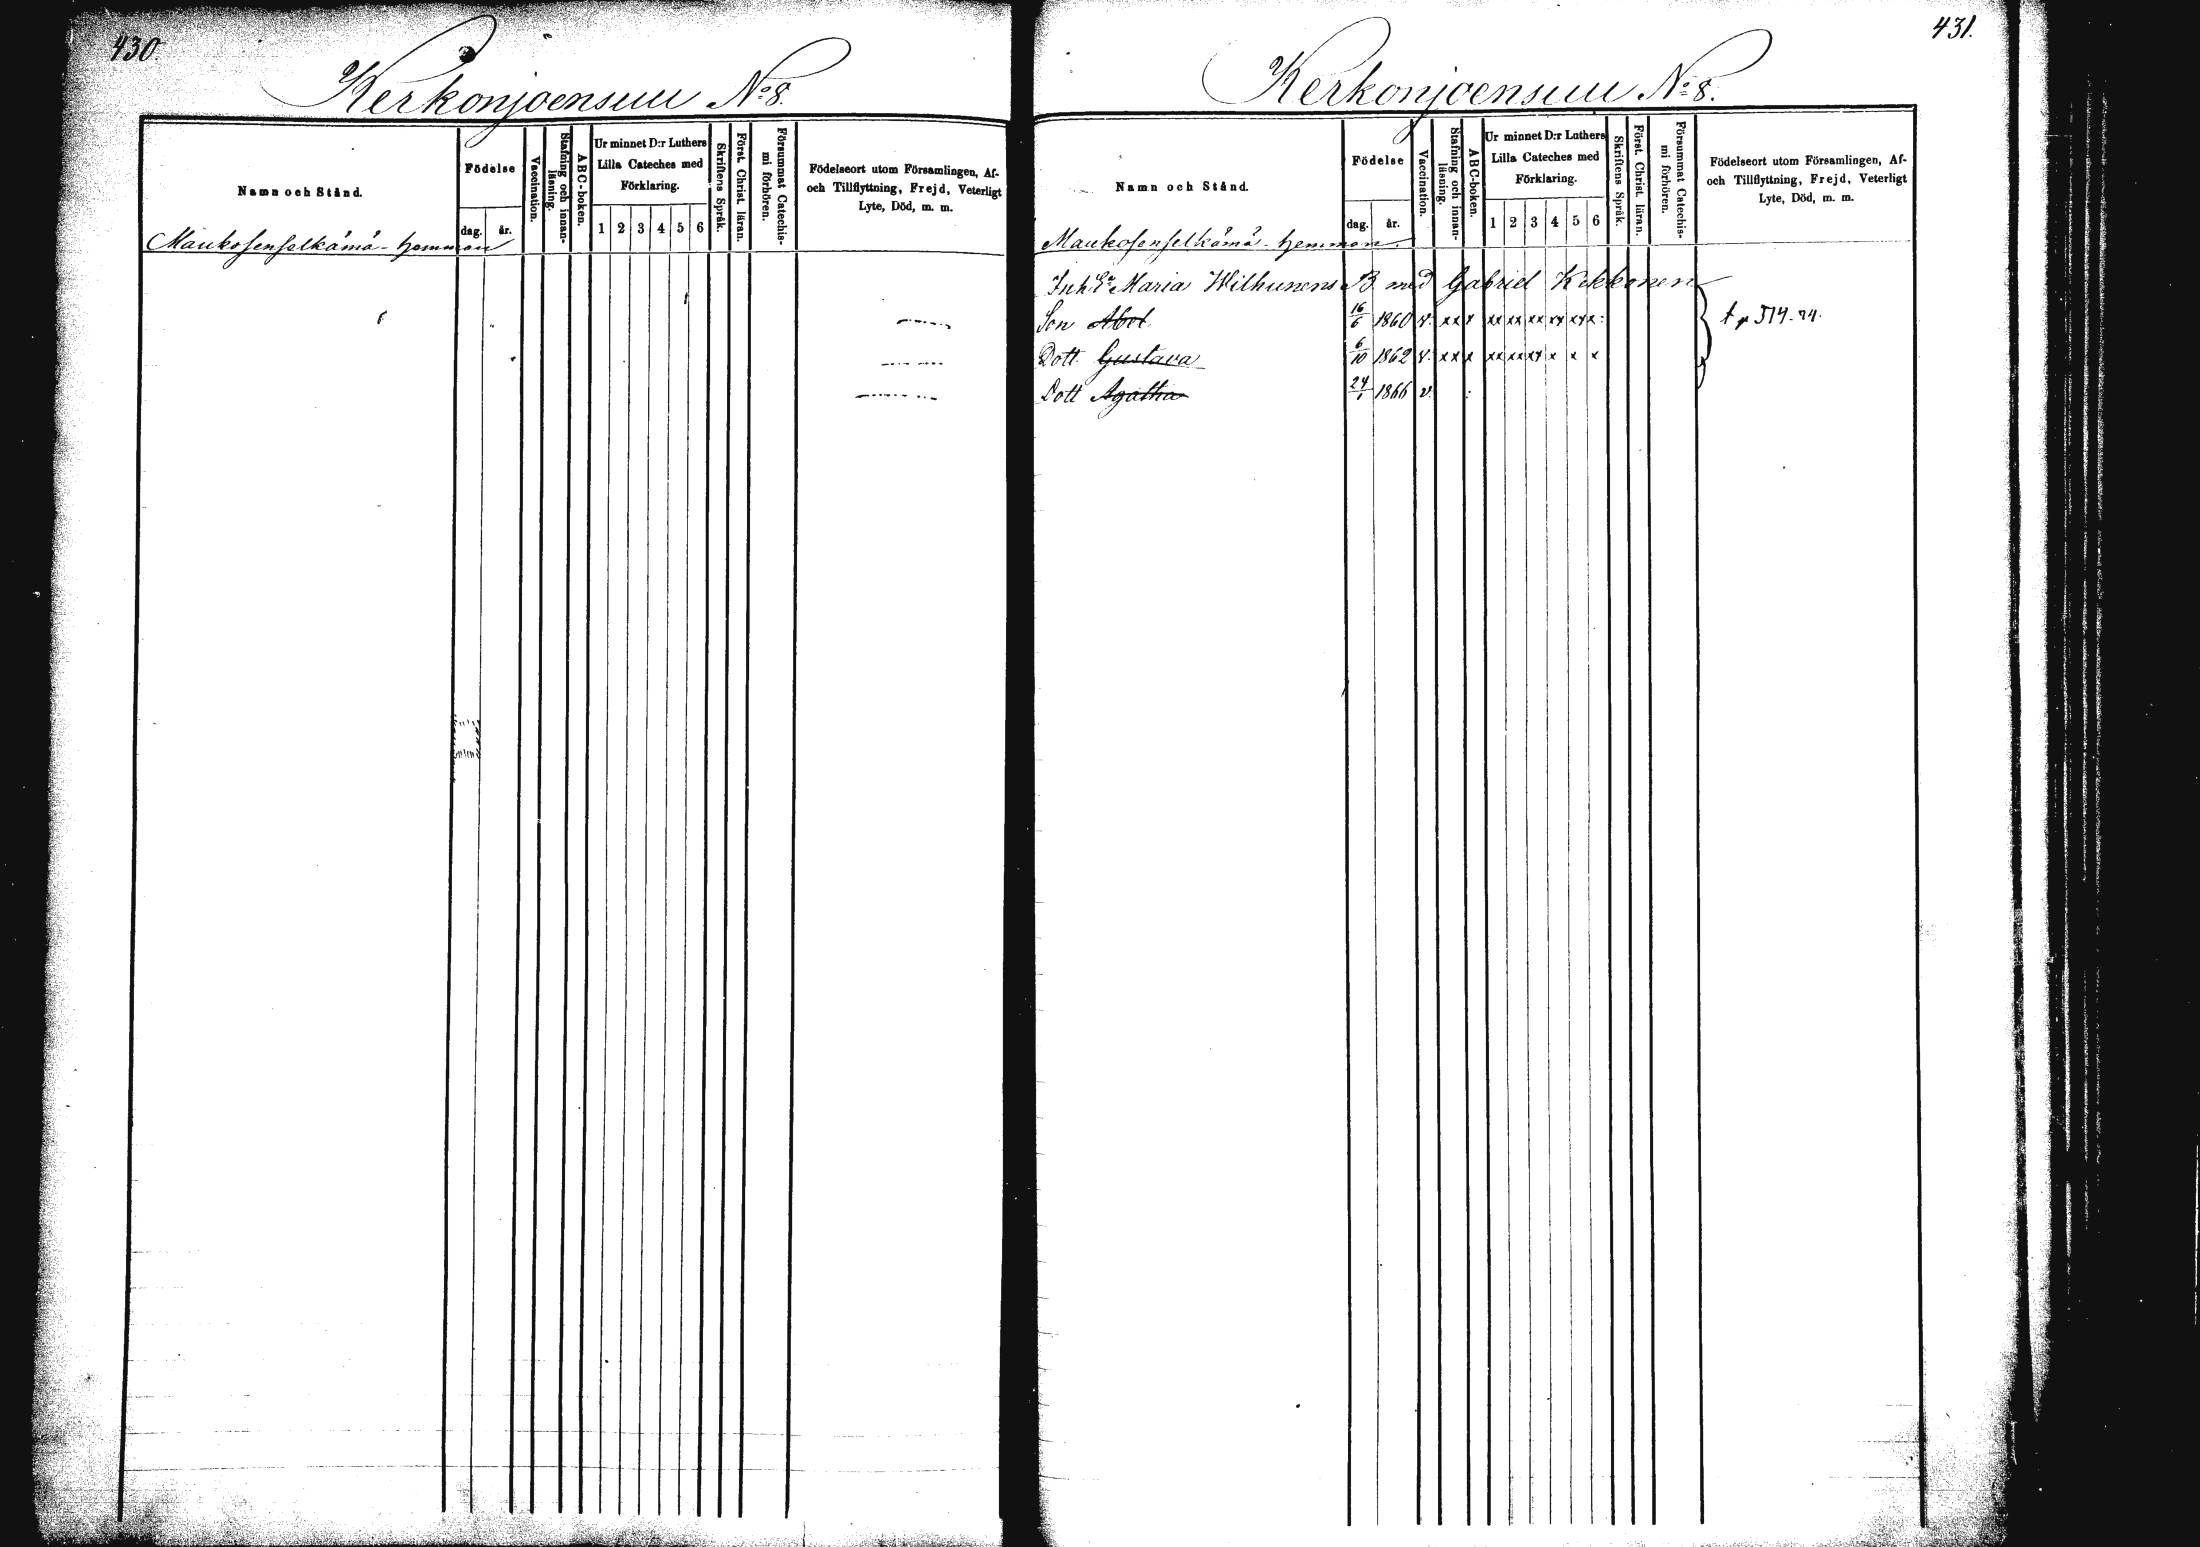 430.
Kerkonjoensuu No 8.
Namn och Stånd.
Födelse
dag.
år.
Vaccination.
Stafning och innanläsning.
ABC-boken.
Ur minnet D:r Luthers
Lilla Cateches med
Förklaring.
1 2 3 4 5 6
Skriftens Språk.
Först. Christ. läran.
Försummat Catechismi förhören.
Födelseort utom Församlingen, Af-
och Tillflyttning, Frejd, Veterligt
Lyte, Död, m. m.
Maukosenselkämä - hemman
431.
Kerkonjoensuu No 8.
Namn och Stånd.
Födelse
dag.
år.
Vaccination.
Stafning och innanläsning.
ABC-boken.
Ur minnet D:r Luthers
Lilla Cateches med
Förklaring.
1 2 3 4 5 6
Skriftens Språk.
Först. Christ. läran.
Försummat Catechismi förhören.
Födelseort utom Församlingen, Af-
och Tillflyttning, Frejd, Veterligt
Lyte, Död, m. m.
Maukosenselkämä - hemman
Inh. Maria Wilhunens B. med Gabriel Kekkonen
Son Abel 16/6 1860 v. xx x xx xx xx xx xx x
t p 514 - 74.
Dott. Gustava 6/10 1862 v. xx x xx xx xx x x x
Dott Agatha 24/1 1866 v.